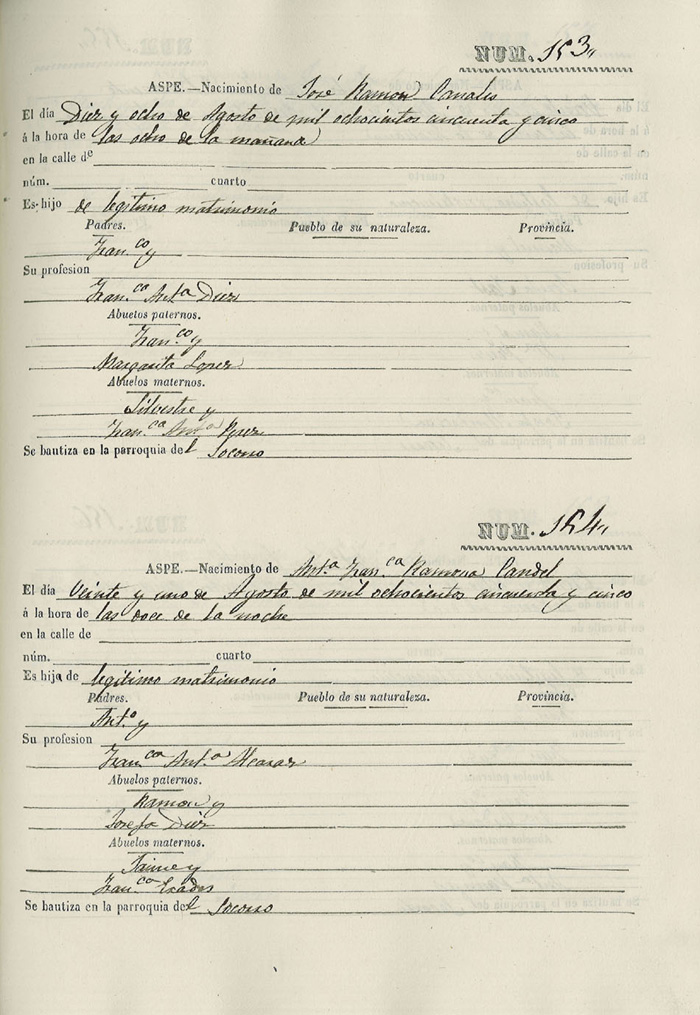 NUM. 153,,
ASPE.—Nacimiento de José Ramon Canales
El día Diez y ocho de Agosto de mil ochocientos cincuenta y cinco
á la hora de las ocho de la mañana
en la calle de
núm. cuarto
Es hijo de legitimo matrimonio
Padres. Pueblo de su naturaleza. Provincia.
Fran.co y
Su profesion
Fran.ca Ant.a Diez
Abuelos paternos.
Fran.co y
Margarita Lopez
Abuelos maternos.
Silvestre y
Fran.ca Ant.a Perez
Se bautiza en la parroquia del Socorro
NUM. 154,,
ASPE.—Nacimiento de Ant.a Fran.ca Ramona Candel
El día Veinte y uno de Agosto de mil ochocientos cincuenta y cinco
á la hora de las doce de la noche
en la calle de
núm. cuarto
Es hija de legitimo matrimonio
Padres. Pueblo de su naturaleza. Provincia.
Ant.o y
Su profesion
Fran.ca Ant.a Alcaraz
Abuelos paternos.
Ramon y
Josefa Diez
Abuelos maternos.
Jaime y
Fran.ca
Se bautiza en la parroquia del Socorro